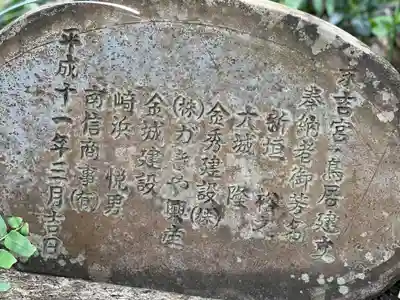 末吉宮鳥居建立
奉納者御芳名
新垣
大城 隆
金秀建設(株)
(株)かきや興産
金城建設
崎浜 悦男
南信商事(有)
平成十一年三月吉日